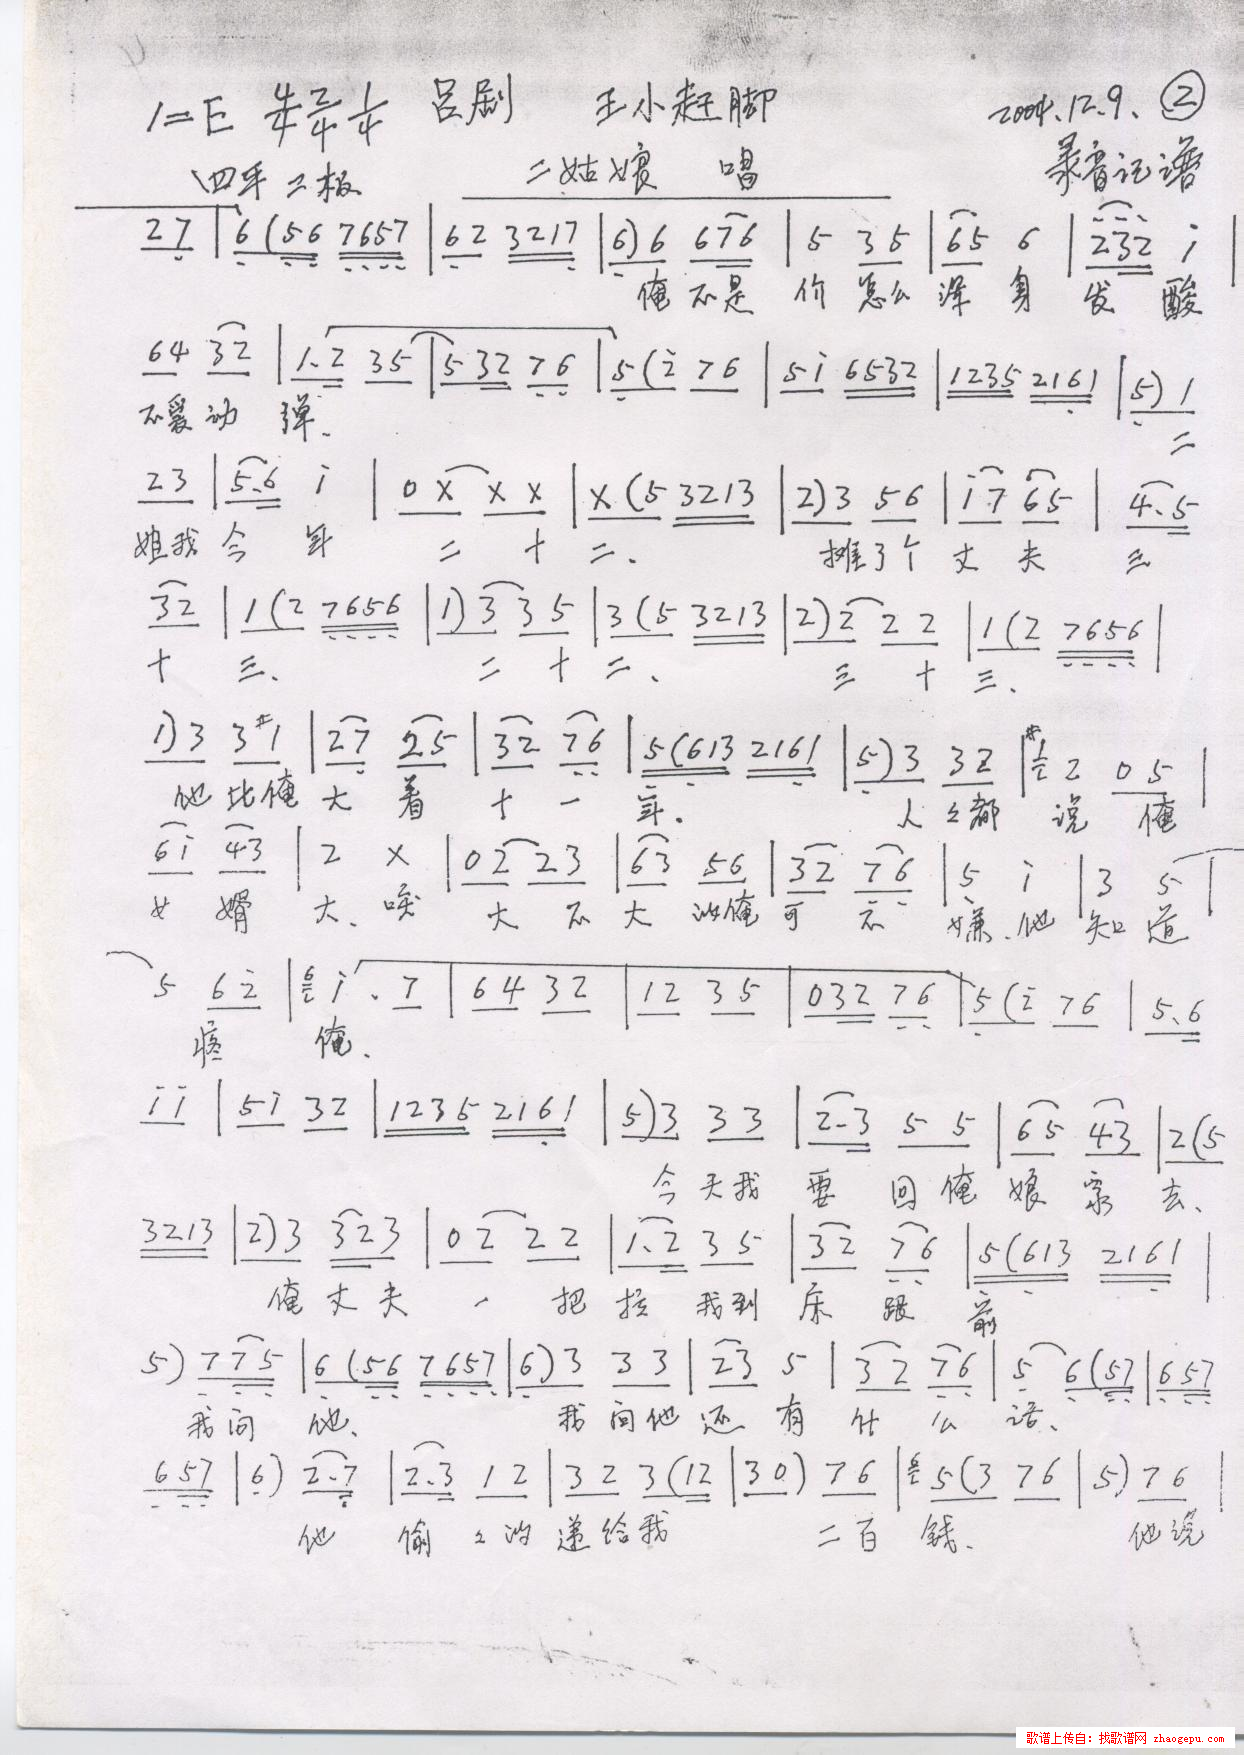 1=E 4/4 2/4 1/4 吕剧 王小赶脚 2004.12.9. ②
四平二板 二姑娘 唱 录音记谱
27 | 6(56 7657 | 62 3217 | 6)6 676 | 5 35 | 65 6 | 232 i |
俺不是 价 怎么 浑身 发 酸
64 32 | 1.2 35 | 532 76 | 5(2 76 | 5i 6532 | 1235 2161 | 5)1
不爱动 弹. 二
23 | 5.6 i | 0X XX | X(5 3213 | 2)3 56 | i7 65 | 4.5
姐我今年 二十二. 摊了个丈夫三
32 | 1(2 7656 | 1)3 35 | 3(5 3213 | 2)2 22 | 1(2 7656 |
十 三. 二十二. 三十三.
1)3 3#1 | 27 25 | 32 76 | 5(613 2161 | 5)3 32 | #1 2 05 |
他比俺大着十一年. 人々都说俺
6i 43 | 2 X | 02 23 | 63 56 | 32 76 | 5 i | 3 5 |
女婿大. 唉 大不大的俺可不嫌.他知道
5 62 | 6 i.7 | 64 32 | 12 35 | 032 76 | 5(2 76 | 5.6
疼 俺.
ii | 5i 32 | 1235 2161 | 5)3 33 | 2.3 55 | 65 43 | 2(5
今天我要回俺娘家去.
3213 | 2)3 323 | 02 22 | 1.2 35 | 32 76 | 5(613 2161 |
俺丈夫一把拉我到床跟前
5) 775 | 6(56 7657 | 6)3 33 | 23 5 | 32 76 | 5 6(57 | 657
我问他. 我问他还有什么话.
657 | 6) 2.7 | 2.3 12 | 32 3(12 | 30) 76 | 6 5(3 76 | 5) 76 |
他偷々的递给我 二百钱. 他说
歌谱上传自：找歌谱网 zhaogepu.com